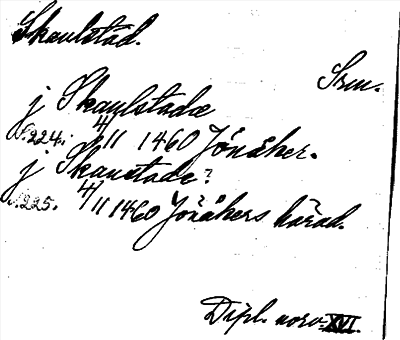 Skaulstad.
Srm.
j Skaulstadæ
s.224. 4/11 1460 Jönåker.
j Skaustade?
s.225. 4/11 1460 Jönåkers härad.
Dipl. norv. XVI.